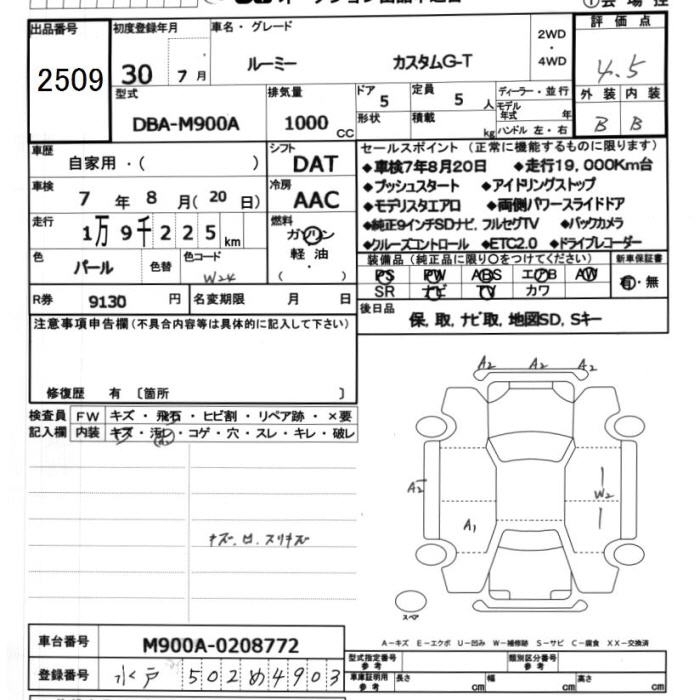 出品番号 2509
初度登録年月 30 年 7 月
車名・グレード ルーミー カスタムG-T
2WD・4WD
評価点 4.5
外装 内装
B B
型式 DBA-M900A
排気量 1000 CC
ドア 5
定員 5 人
形状 積載 kg
ディーラー・並行
モデル年式 年
ハンドル 左・右
車歴 自家用・( )
シフト DAT
セールスポイント (正常に機能するものに限ります)
◆車検7年8月20日 ◆走行19,000Km台
◆プッシュスタート ◆アイドリングストップ
◆モデリスタエアロ ◆両側パワースライドドア
◆純正9インチSDナビ, フルセグTV ◆バックカメラ
◆クルーズコントロール ◆ETC2.0 ◆ドライブレコーダー
車検 7 年 8 月 (20 日)
冷房 AAC
走行 1万9千225km
燃料 ガソリン 軽油 ( ・ )
色 パール 色替 色コード W24
装備品 (純正品に限り○をつけてください)
PS PW ABS エアB AW
SR ナビ TV カワ
新車保証書 有・無
R券 9130 円 名変期限 月 日
後日品 保, 取, ナビ取, 地図SD, Sキー
注意事項申告欄 (不具合内容等は具体的に記入して下さい)
修復歴 有 〔箇所 〕
検査員記入欄
FW キズ・飛石・ヒビ割・リペア跡・×要
内装 キズ・汚れ・コゲ・穴・スレ・キレ・破レ
A2 A2 A2
A2 W2
A1
スペア
A-キズ E-エクボ U-凹み W-補修跡 S-サビ C-腐食 XX-交換済
車台番号 M900A-0208772
登録番号 水戸 502め4903
型式指定番号 参考
類別区分番号 参考
車庫証明用 参考 長さ cm 幅 cm 高さ cm